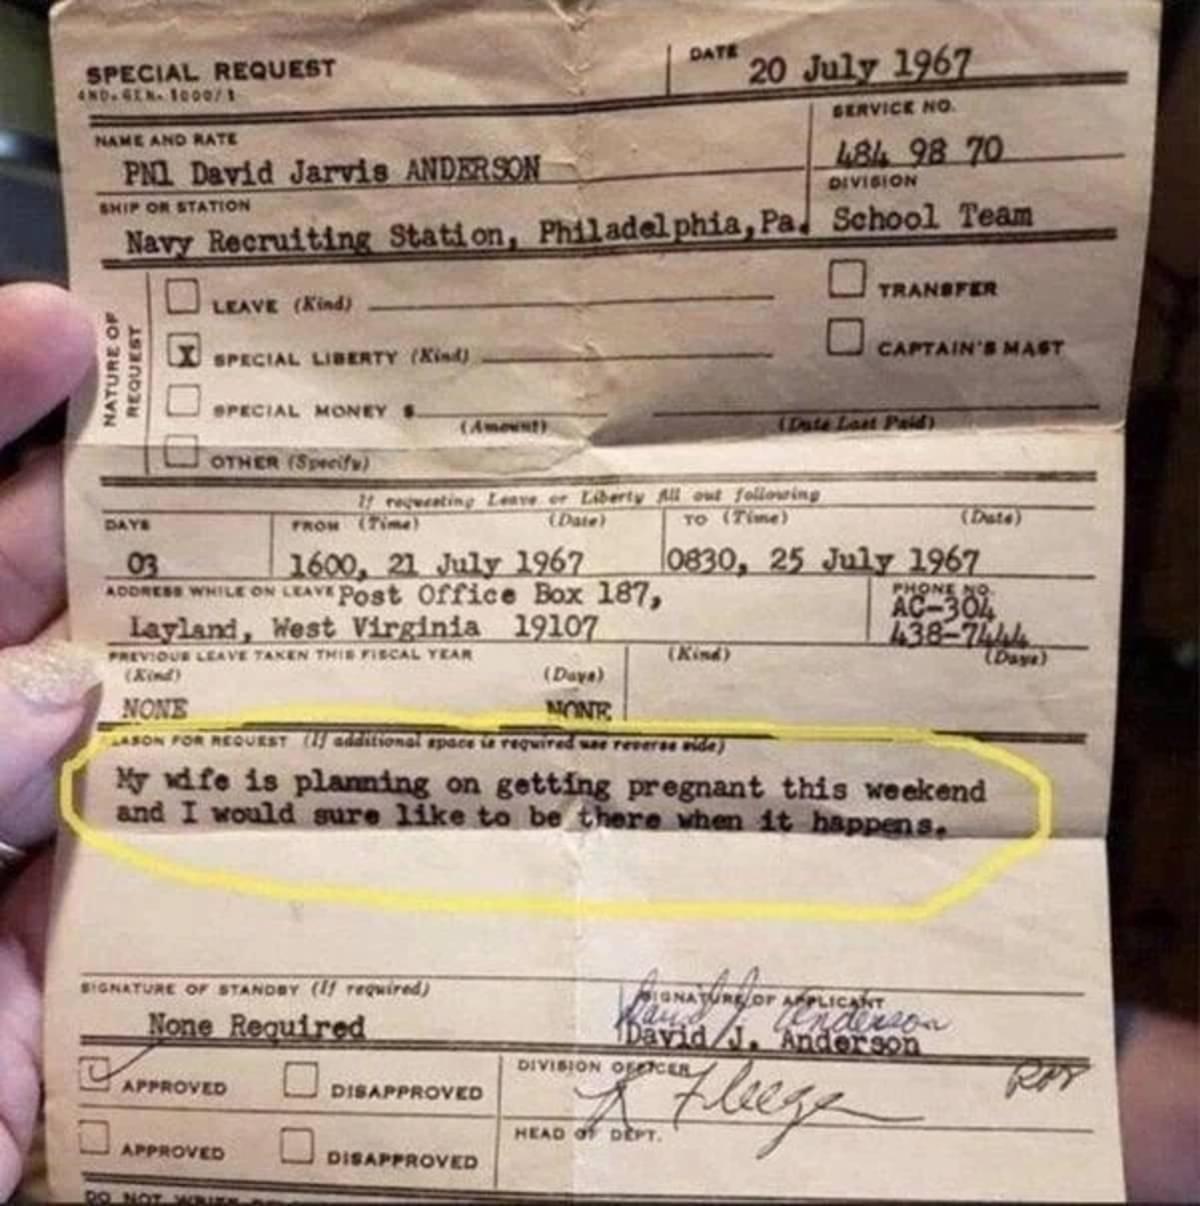 SPECIAL REQUEST
4ND-GEN-1000/1
DATE 20 July 1967
NAME AND RATE
PN1 David Jarvis ANDERSON
SERVICE NO.
484 98 70
SHIP OR STATION
Navy Recruiting Station, Philadelphia, Pa.
DIVISION
School Team
NATURE OF REQUEST
LEAVE (Kind)
TRANSFER
X SPECIAL LIBERTY (Kind)
CAPTAIN'S MAST
SPECIAL MONEY $
(Amount) (Date Last Paid)
OTHER (Specify)
If requesting Leave or Liberty fill out following
DAYS FROM (Time) (Date) TO (Time) (Date)
03 1600, 21 July 1967 0830, 25 July 1967
ADDRESS WHILE ON LEAVE Post Office Box 187,
Layland, West Virginia 19107
PHONE NO.
AC-304
438-7444
PREVIOUS LEAVE TAKEN THIS FISCAL YEAR
(Kind) (Days) (Kind) (Days)
NONE NONE
REASON FOR REQUEST (If additional space is required use reverse side)
My wife is planning on getting pregnant this weekend
and I would sure like to be there when it happens.
SIGNATURE OF STANDBY (If required)
None Required
SIGNATURE OF APPLICANT
David J Anderson
David J. Anderson
APPROVED DISAPPROVED
DIVISION OFFICER
HEAD OF DEPT.
APPROVED DISAPPROVED
DO NOT WRITE